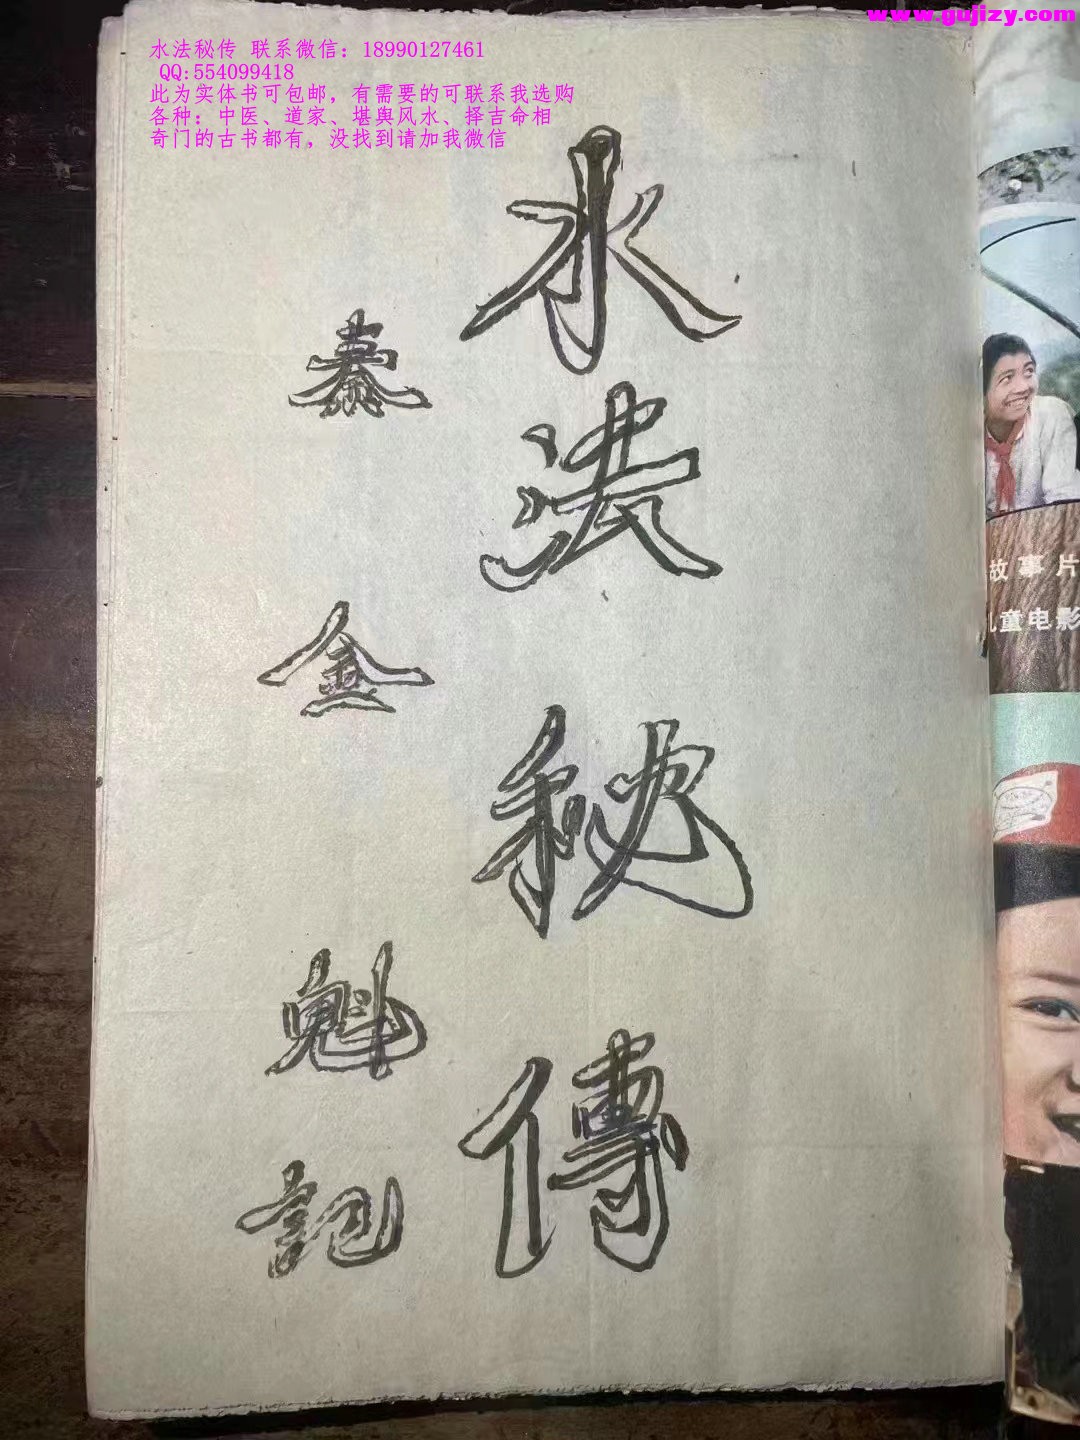 www.gujizy.com
水法秘传 联系微信：18990127461
QQ:554099418
此为实体书可包邮，有需要的可联系我选购
各种：中医、道家、堪舆风水、择吉命相
奇门的古书都有，没找到请加我微信
水法秘傳
秦金魁記
故事片
儿童电影